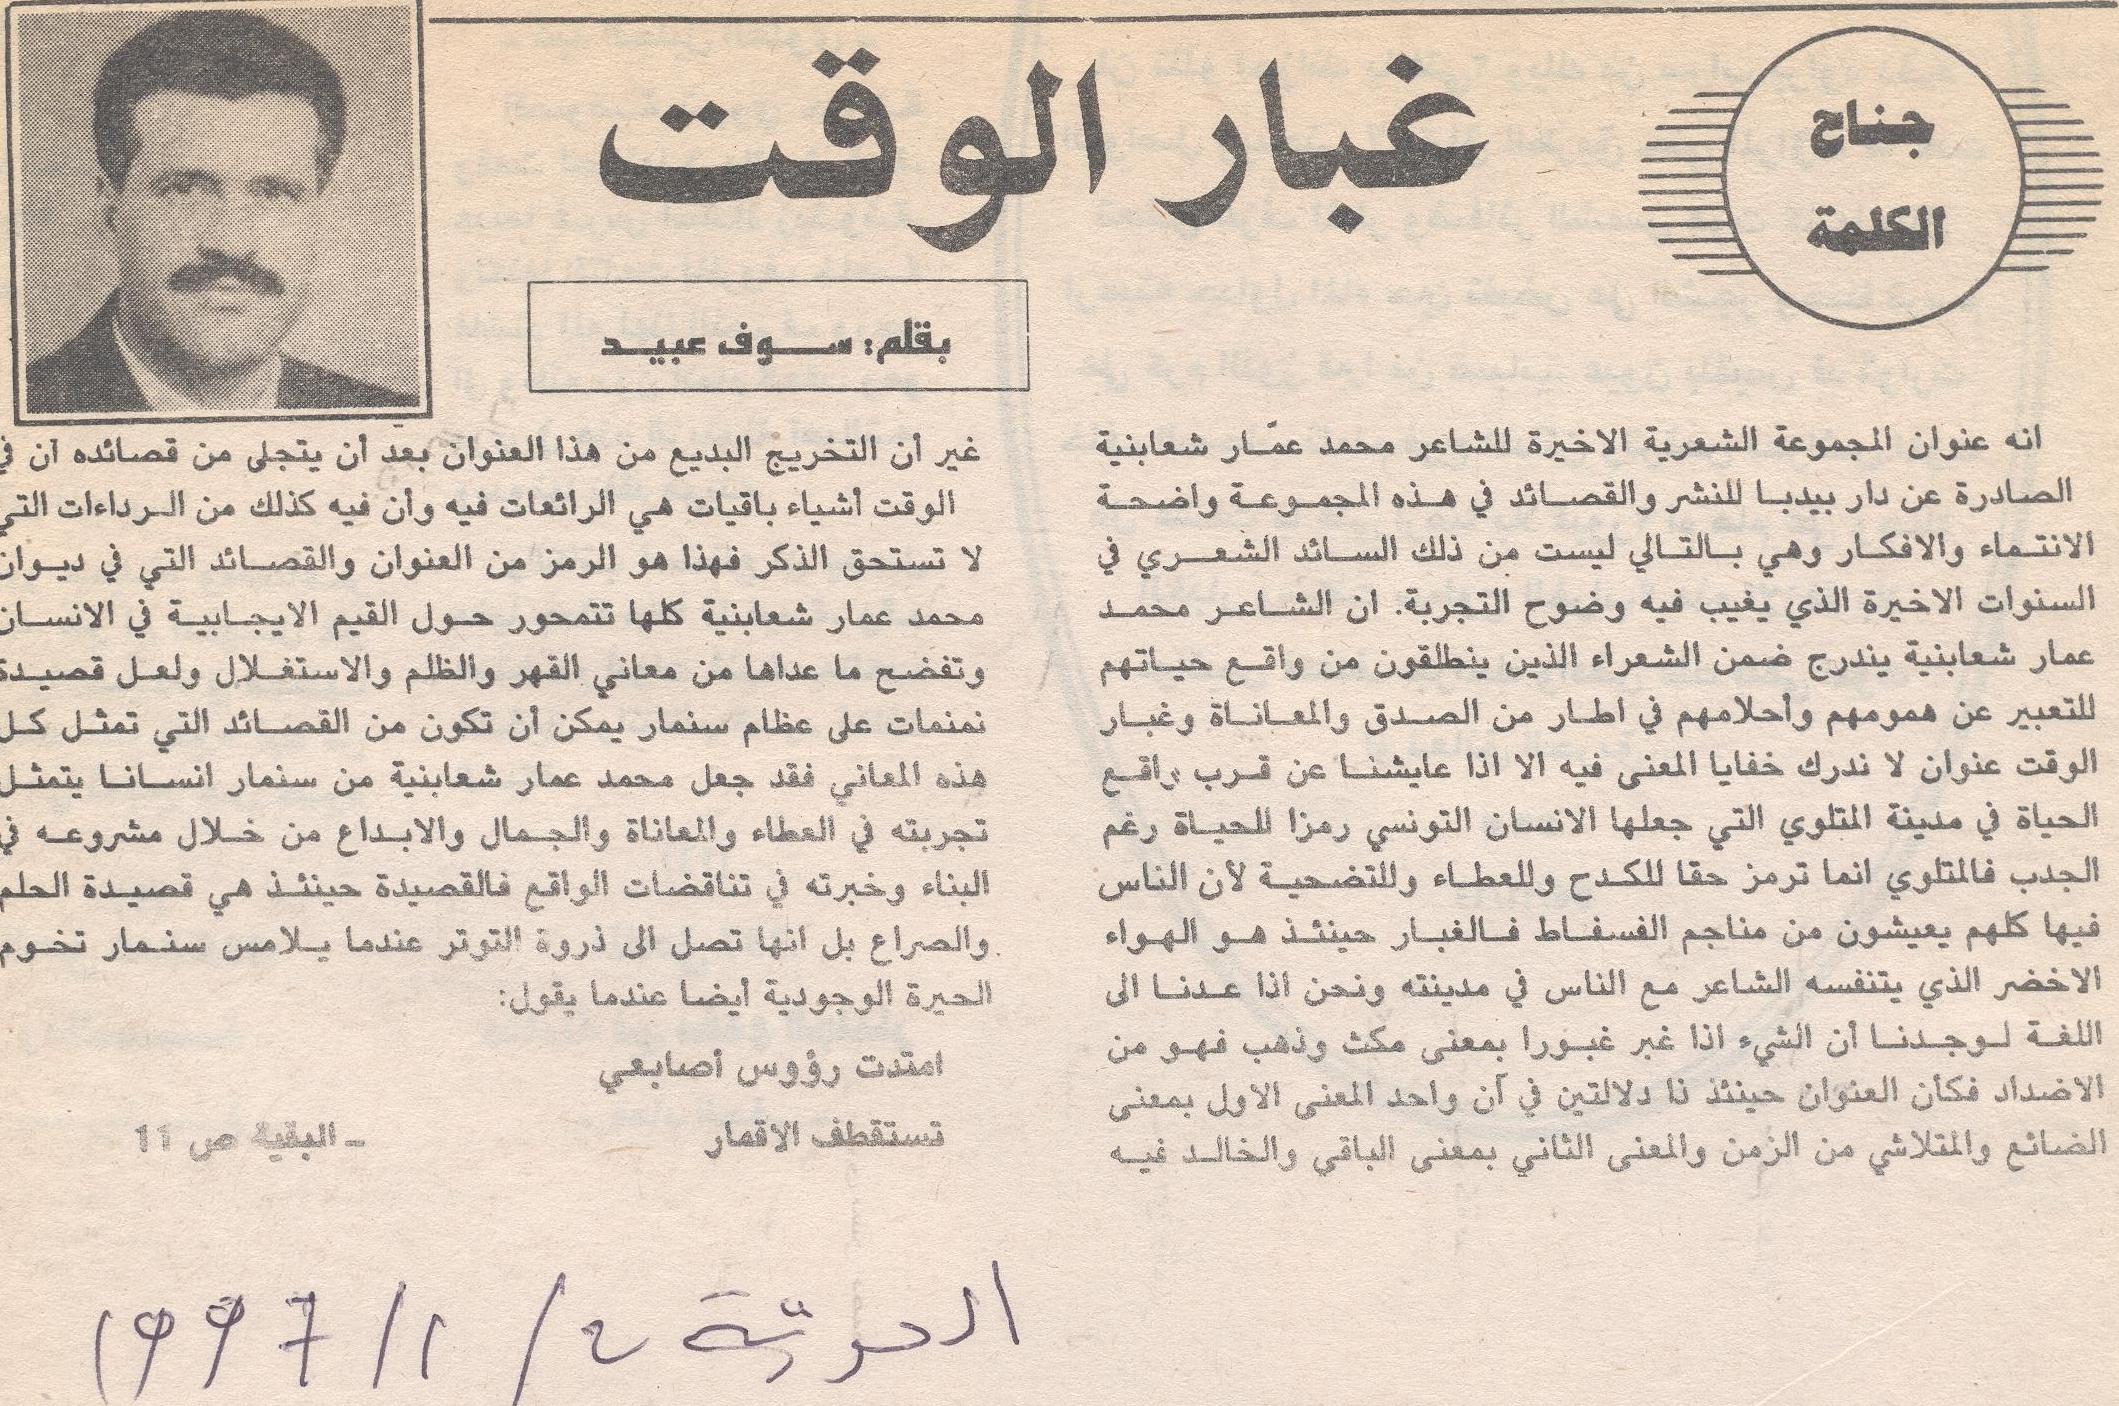 جناح
الكلمة
غبار الوقت
بقلم: سوف عبيد
انه عنوان المجموعة الشعرية الاخيرة للشاعر محمد عمّار شعابنية
الصادرة عن دار بيدبا للنشر والقصائد في هذه المجموعة واضحة
الانتماء والافكار وهي بالتالي ليست من ذلك السائد الشعري في
السنوات الاخيرة الذي يغيب فيه وضوح التجربة. ان الشاعر محمد
عمار شعابنية يندرج ضمن الشعراء الذين ينطلقون من واقع حياتهم
للتعبير عن همومهم وأحلامهم في اطار من الصدق والمعاناة وغبار
الوقت عنوان لا ندرك خفايا المعنى فيه الا اذا عايشنا عن قرب واقع
الحياة في مدينة المتلوي التي جعلها الانسان التونسي رمزا للحياة رغم
الجدب فالمتلوي انما ترمز حقا للكدح وللعطاء وللتضحية لأن الناس
فيها كلهم يعيشون من مناجم الفسفاط فالغبار حينئذ هو الهواء
الاخضر الذي يتنفسه الشاعر مع الناس في مدينته ونحن اذا عدنا الى
اللغة لوجدنا أن الشيء اذا غبر غبورا بمعنى مكث وذهب فهو من
الاضداد فكأن العنوان حينئذ ذا دلالتين في آن واحد المعنى الاول بمعنى
الضائع والمتلاشي من الزمن والمعنى الثاني بمعنى الباقي والخالد فيه
غير أن التخريج البديع من هذا العنوان بعد أن يتجلى من قصائده أن في
الوقت أشياء باقيات هي الرائعات فيه وأن فيه كذلك من الرداءات التي
لا تستحق الذكر فهذا هو الرمز من العنوان والقصائد التي في ديوان
محمد عمار شعابنية كلها تتمحور حول القيم الايجابية في الانسان
وتفضح ما عداها من معاني القهر والظلم والاستغلال ولعل قصيدة
نمنمات على عظام سنمار يمكن أن تكون من القصائد التي تمثل كل
هذه المعاني فقد جعل محمد عمار شعابنية من سنمار انسانا يتمثل
تجربته في العطاء والمعاناة والجمال والابداع من خلال مشروعه في
البناء وخبرته في تناقضات الواقع فالقصيدة حينئذ هي قصيدة الحلم
والصراع بل انها تصل الى ذروة التوتر عندما يلامس سنمار تخوم
الحيرة الوجودية أيضا عندما يقول:
امتدت رؤوس أصابعي
تستقطف الاقمار
ـ البقية ص 11
الحريّة 2/1/1997